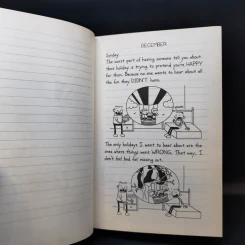 DECEMBER
Sunday
The worst part of having someone tell you about
their holiday is trying to pretend you're HAPPY
for them. Because no one wants to hear about all
the fun they DIDN'T have.
The only holidays I want to hear about are the
ones where things went WRONG. That way, I
don't feel bad for missing out.